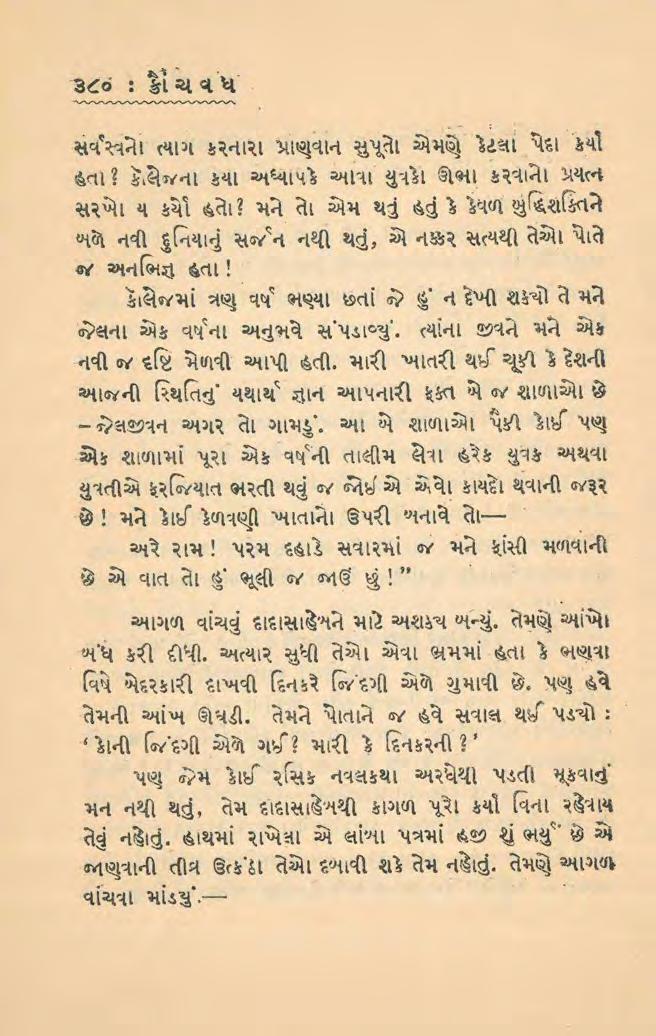 ૩૮૦ : ક્રૌંચવધ
સર્વસ્વનો ત્યાગ કરનારા પ્રાણવાન સુપૂતો એમણે કેટલા પેદા કર્યાં
હતા? કૉલેજના કયા અધ્યાપકે આવા યુવકો ઊભા કરવાનો પ્રયત્ન
સરખો ય કર્યો હતો? મને તો એમ થતું હતું કે કેવળ બુદ્ધિશક્તિને
બળે નવી દુનિયાનું સર્જન નથી થતું, એ નક્કર સત્યથી તેઓ પોતે
જ અનભિજ્ઞ હતા!
કૉલેજમાં ત્રણ વર્ષ ભણ્યા છતાં જે હું ન દેખી શક્યો તે મને
જેલના એક વર્ષના અનુભવે સંપડાવ્યું. ત્યાંના જીવને મને એક
નવી જ દૃષ્ટિ મેળવી આપી હતી. મારી ખાતરી થઈ ચૂકી કે દેશની
આજની સ્થિતિનું યથાર્થ જ્ઞાન આપનારી ફક્ત બે જ શાળાઓ છે
– જેલજીવન અગર તો ગામડું. આ બે શાળાઓ પૈકી કોઈ પણ
એક શાળામાં પૂરા એક વર્ષની તાલીમ લેવા હરેક યુવક અથવા
યુવતીએ ફરજિયાત ભરતી થવું જ જોઈએ એવો કાયદો થવાની જરૂર
છે! મને કોઈ કેળવણી ખાતાનો ઉપરી બનાવે તો—
અરે રામ! પરમ દહાડે સવારમાં જ મને ફાંસી મળવાની
છે એ વાત તો હું ભૂલી જ જાઉં છું!”
આગળ વાંચવું દાદાસાહેબને માટે અશક્ય બન્યું. તેમણે આંખો
બંધ કરી દીધી. અત્યાર સુધી તેઓ એવા ભ્રમમાં હતા કે ભણવા
વિષે બેદરકારી દાખવી દિનકરે જિંદગી એળે ગુમાવી છે. પણ હવે
તેમની આંખ ઊઘડી. તેમને પોતાને જ હવે સવાલ થઈ પડ્યો :
‘કોની જિંદગી એળે ગઈ? મારી કે દિનકરની?’
પણ જેમ કોઈ રસિક નવલકથા અરધેથી પડતી મૂકવાનું
મન નથી થતું, તેમ દાદાસાહેબથી કાગળ પૂરો કર્યા વિના રહેવાય
તેવું નહોતું. હાથમાં રાખેલા એ લાંબા પત્રમાં હજી શું ભર્યું છે એ
જાણવાની તીવ્ર ઉત્કંઠા તેઓ દબાવી શકે તેમ નહોતું. તેમણે આગળ
વાંચવા માંડ્યું.—